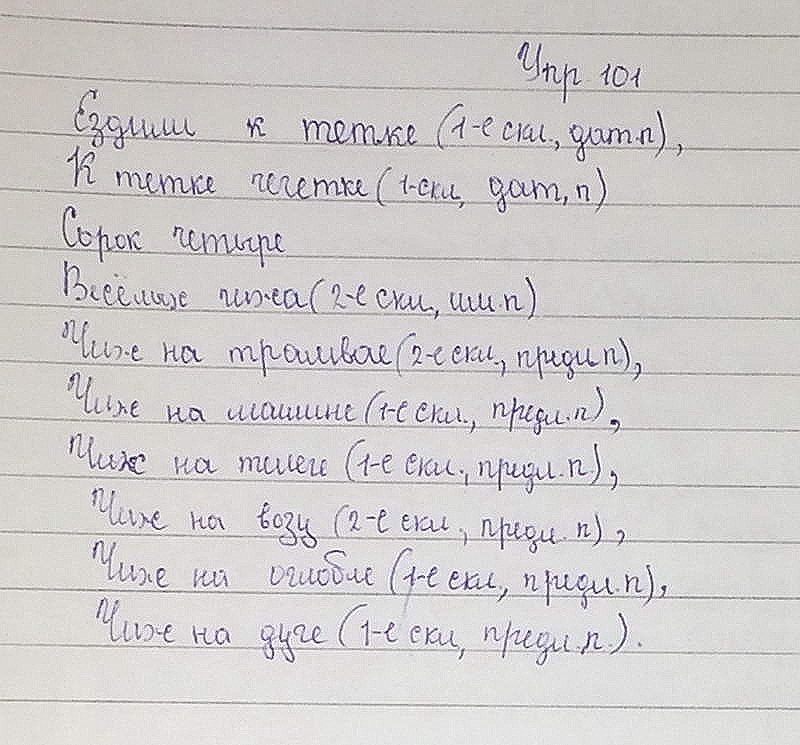 Упр 101
Ездили к тетке (1-е скл., дат.п),
К тетке чечетке (1-скл, дат, п)
Сорок четыре
Весёлых чижа (2-е скл, им.п)
Чиж на трамвае (2-е скл., предл.п),
Чиж на машине (1-е скл., предл.п),
Чиж на телеге (1-е скл., предл.п),
Чиж на возу (2-е скл., предл.п),
Чиж на оглобле (1-е скл., предл.п),
Чиж на дуге (1-е скл, предл.п.).